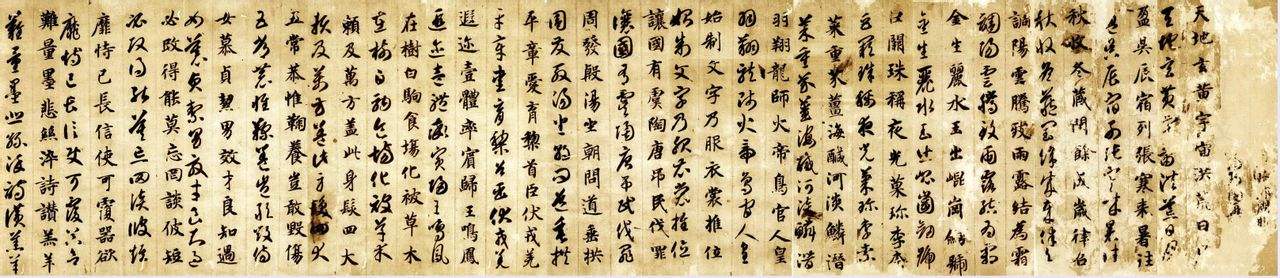 天地玄黄宇宙洪荒日月
天地玄黄宇宙洪荒日月
盈昃辰宿列張寒来暑往
盈昃辰宿列張寒来暑往
秋收冬藏閏餘成歲律吕
秋收冬藏閏餘成歲律吕
調陽雲騰致雨露結為霜
調陽雲騰致雨露結為霜
金生麗水玉出崐崗劔號
金生麗水玉出崐崗劔號
巨闕珠稱夜光菓珍李柰
巨闕珠稱夜光菓珍李柰
菜重芥薑海醎河淡鱗潜
菜重芥薑海醎河淡鱗潜
羽翔龍師火帝鳥官人皇
羽翔龍師火帝鳥官人皇
始制文字乃服衣裳推位
始制文字乃服衣裳推位
讓國有虞陶唐吊民伐罪
讓國有虞陶唐吊民伐罪
周發殷湯坐朝問道垂拱
周發殷湯坐朝問道垂拱
平章愛育黎首臣伏戎羌
平章愛育黎首臣伏戎羌
遐迩壹體率賓歸王鳴鳳
遐迩壹體率賓歸王鳴鳳
在樹白駒食場化被草木
在樹白駒食場化被草木
賴及萬方盖此身髮四大
賴及萬方盖此身髮四大
五常恭惟鞠養豈敢毀傷
五常恭惟鞠養豈敢毀傷
女慕貞絜男效才良知過
女慕貞絜男效才良知過
必改得能莫忘罔談彼短
必改得能莫忘罔談彼短
靡恃己長信使可覆器欲
靡恃己長信使可覆器欲
難量墨悲絲淬詩讚羔羊
難量墨悲絲淬詩讚羔羊